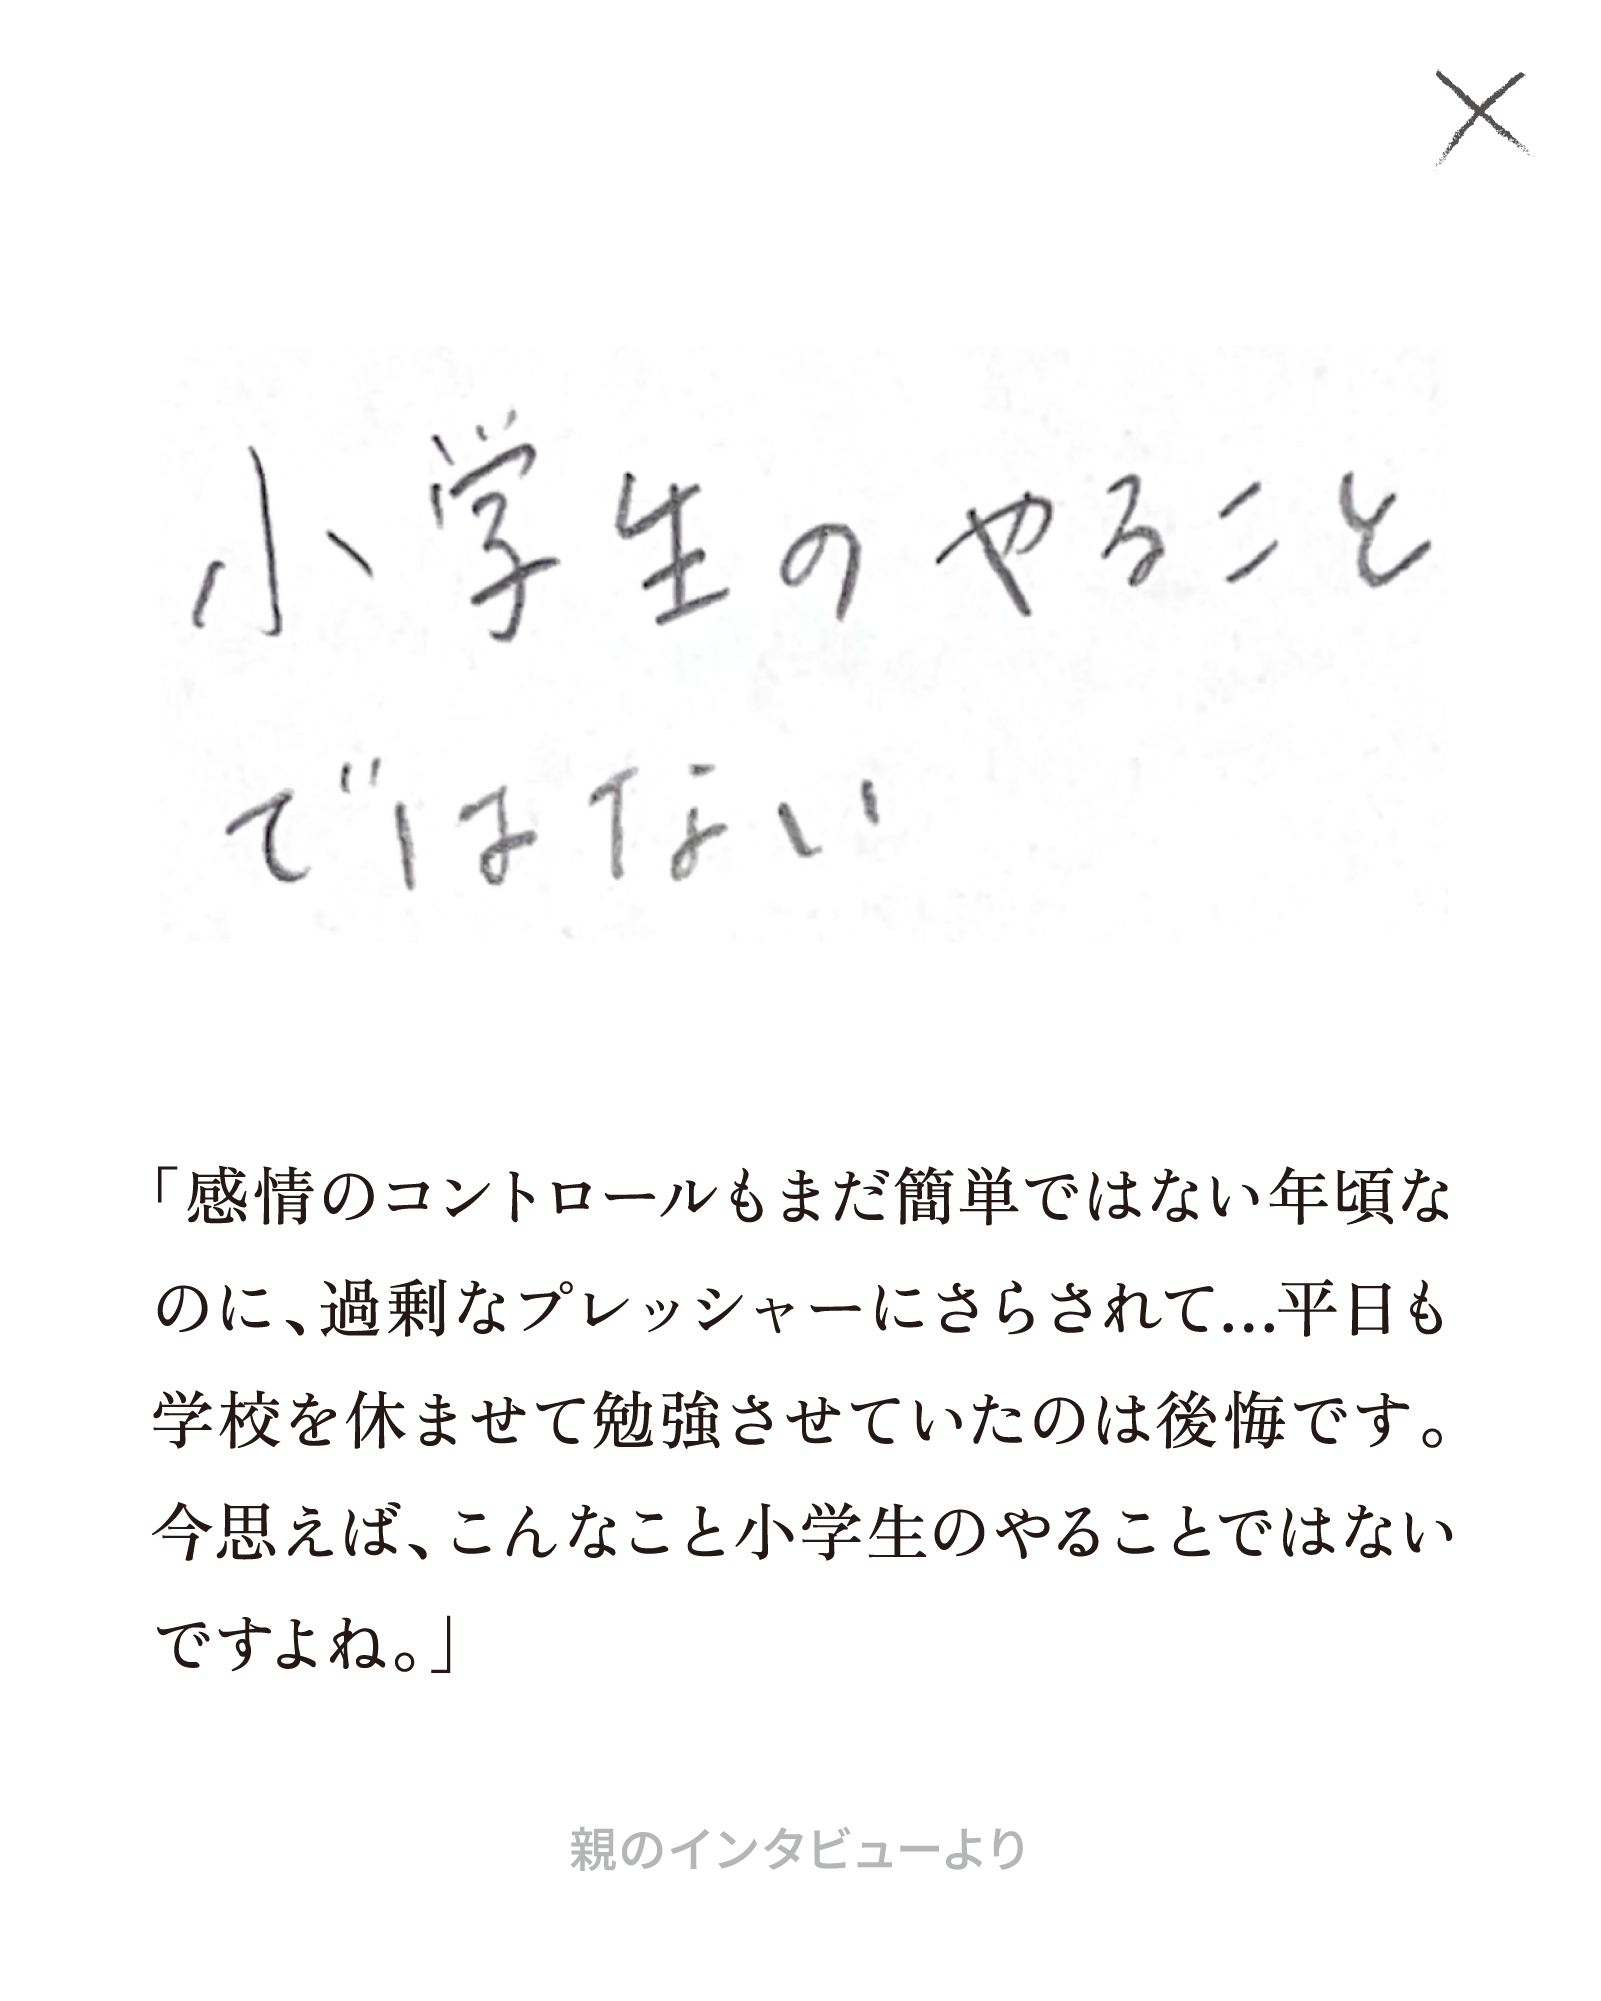 小学生のやること
ではない
「感情のコントロールもまだ簡単ではない年頃な
のに、過剰なプレッシャーにさらされて...平日も
学校を休ませて勉強させていたのは後悔です。
今思えば、こんなこと小学生のやることではない
ですよね。」
親のインタビューより